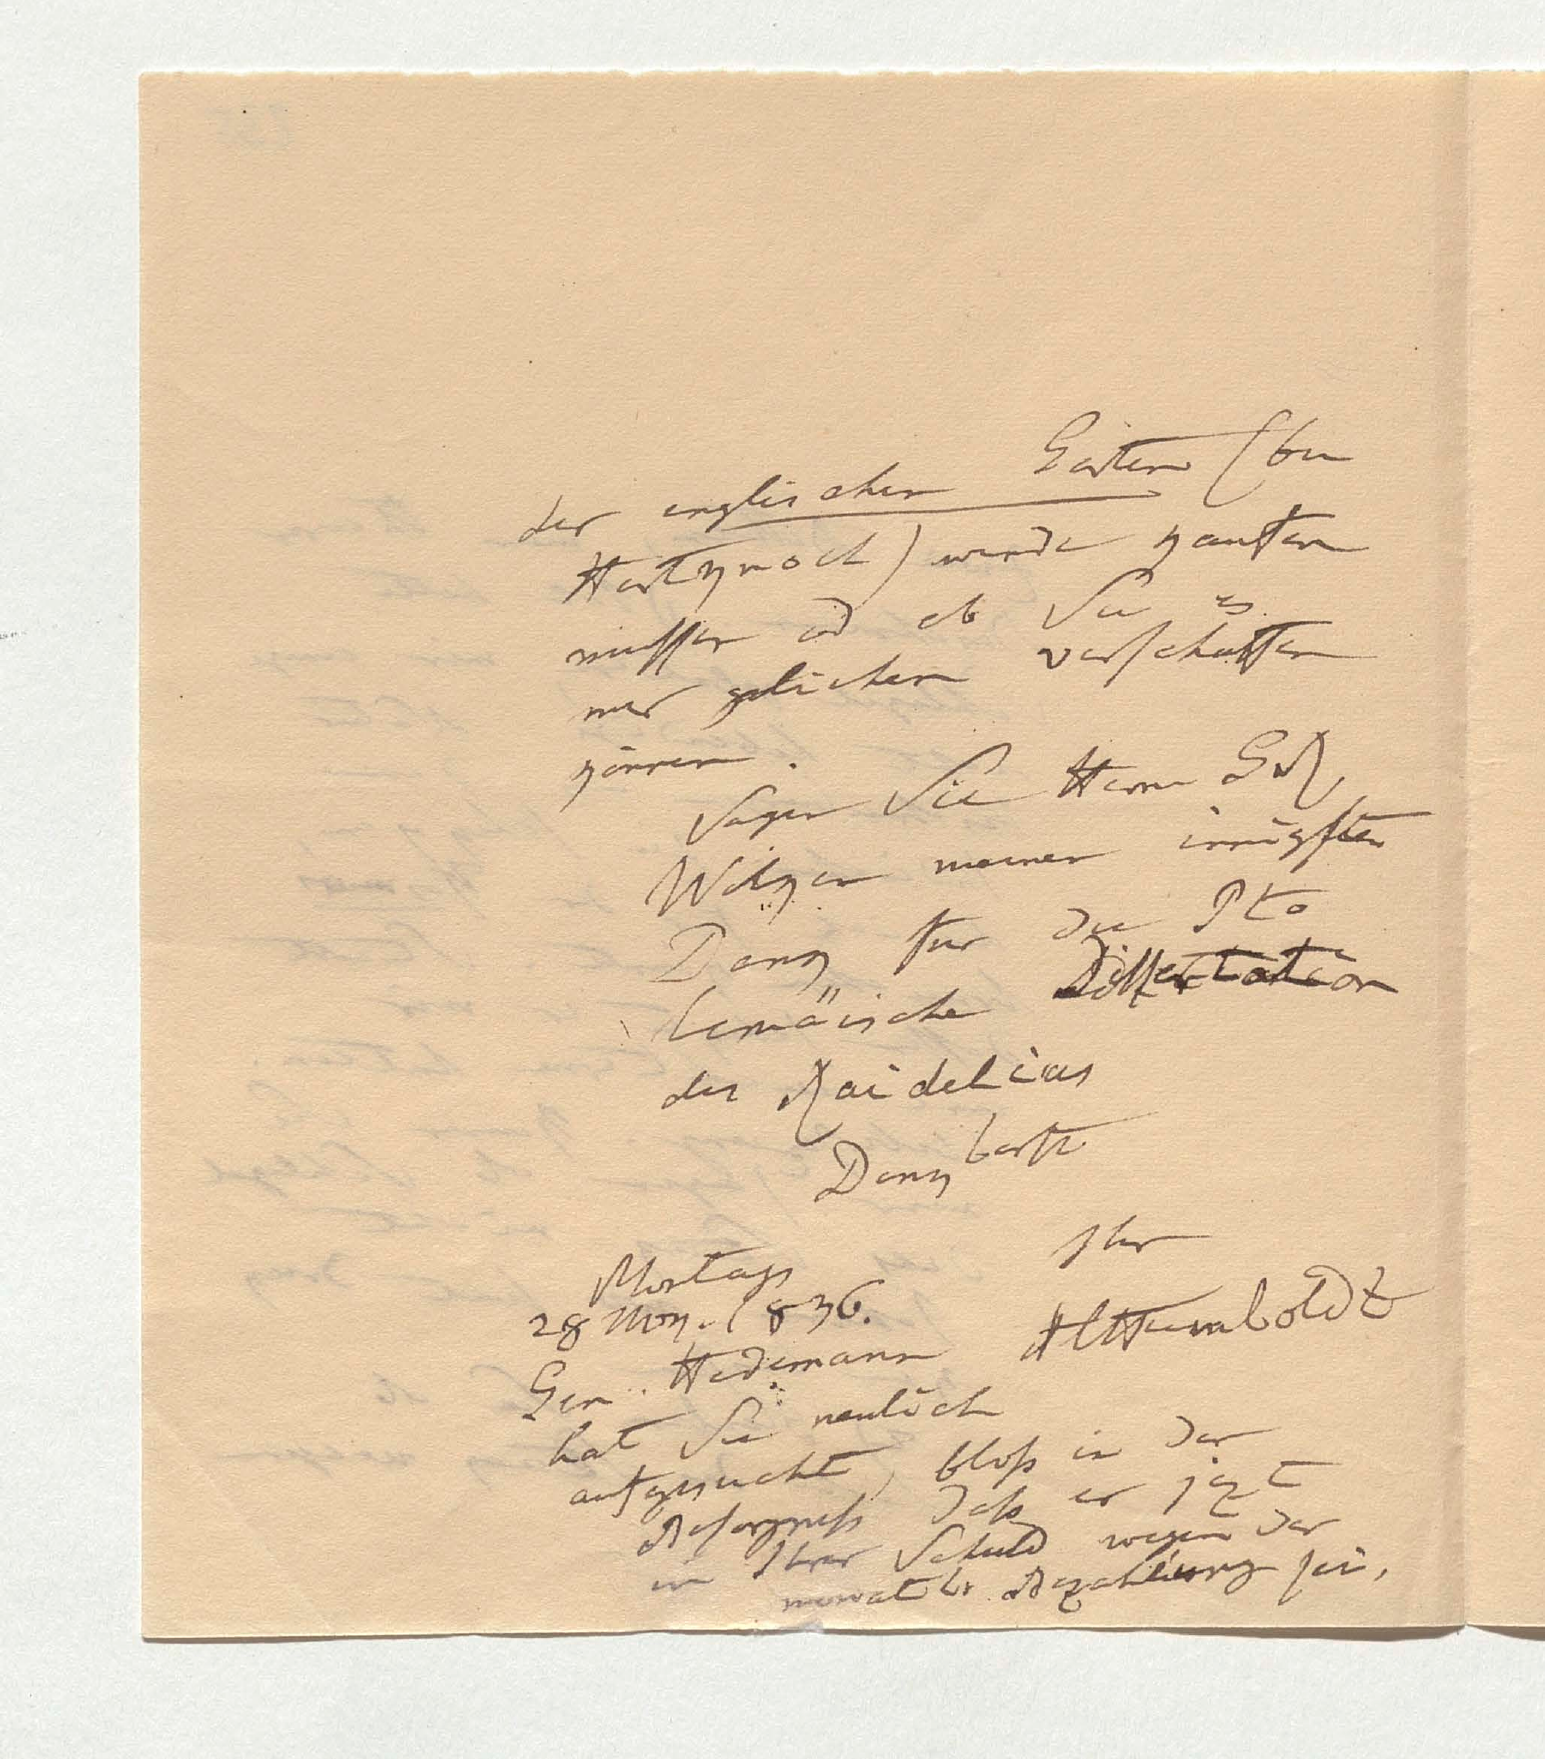 der englischen Gärten (bei
Hartknoch) werde kaufen
müssen od ob Sie es
mir gelichen verschaffen
können.
Sagen Sie Herrn GR,
Wilken meinen innigsten
Dank für die Pto
lemäische Dissertation
des Raidelius
Dankbarst
Ihr
AlHumboldt
Montags
28 Nov. 1836.
Gen. Hedemann
hat Sie neulich
aufgesucht, bloß in der
Besorgniß daß er jezt
in Ihrer Schuld wegen der
monatl. Bezahlung sei,